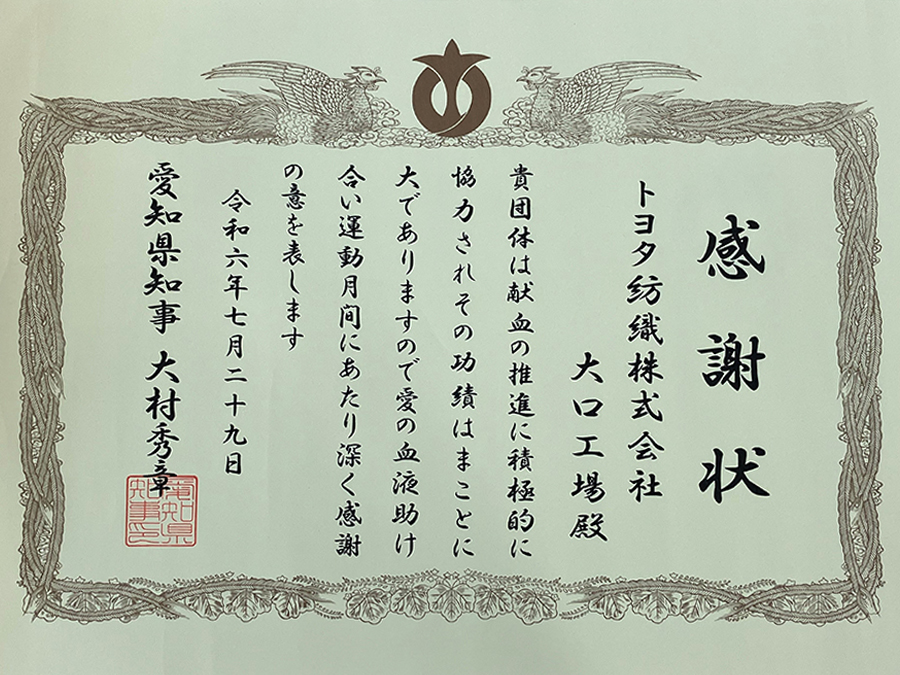 感謝状
トヨタ紡織株式会社
大口工場殿
貴団体は献血の推進に積極的に
協力されその功績はまことに
大でありますので愛の血液助け
合い運動月間にあたり深く感謝
の意を表します
令和六年七月二十九日
愛知県知事 大村秀章
愛知県
知事印